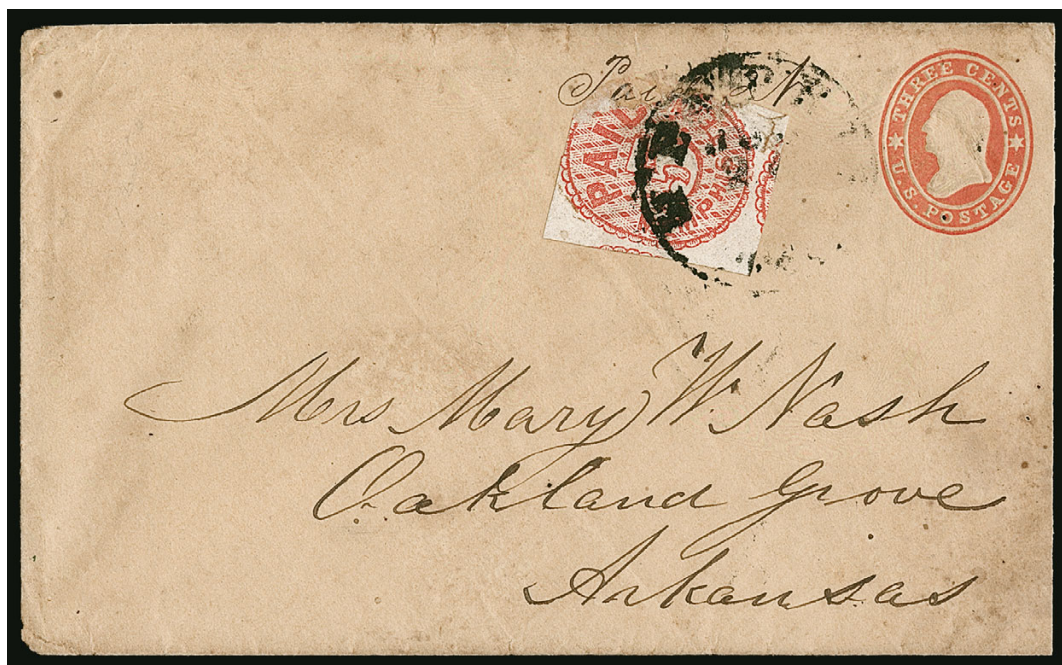 Paid N
THREE CENTS
U.S. POSTAGE
PAID
5
Mrs Mary W. Nash
Oakland Grove
Arkansas